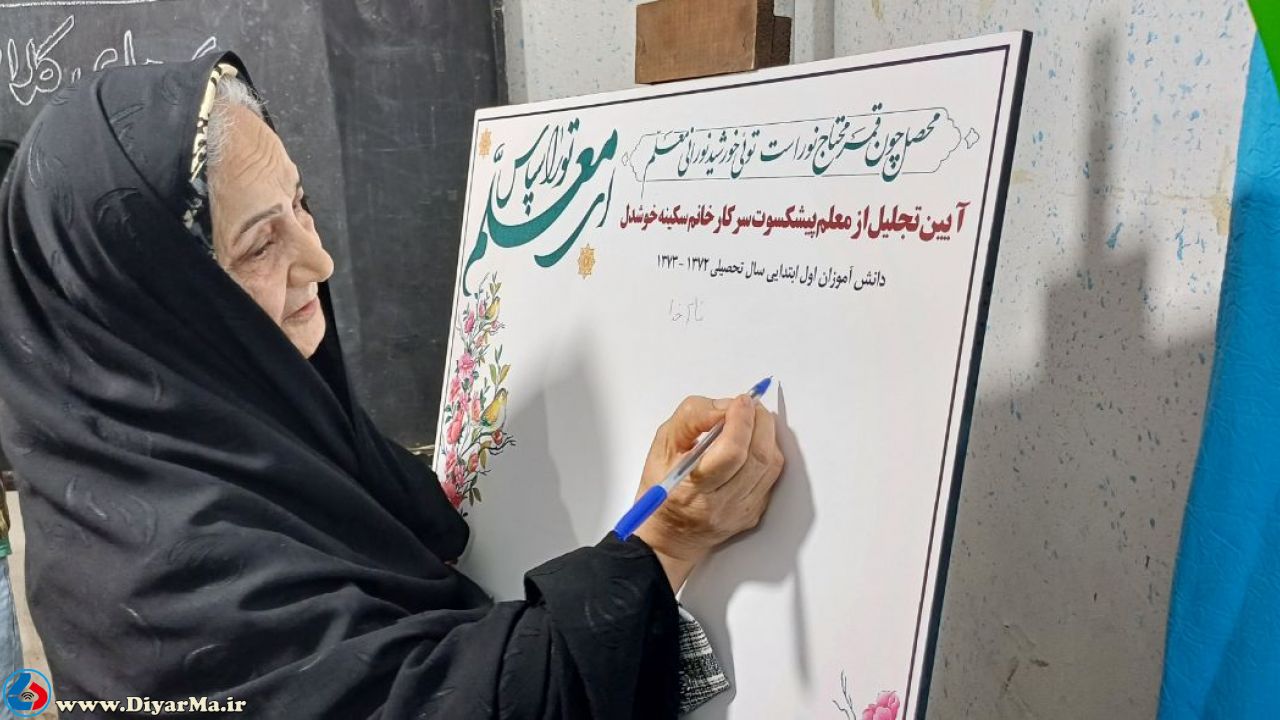 محصل چون قمر محتاج نور است تویی خورشید نورانی معلم
ای معلم تو را سپاس
آیین تجلیل از معلم پیشکسوت سرکار خانم سکینه خوشدل
دانش آموزان اول ابتدایی سال تحصیلی ۱۳۷۲ - ۱۳۷۳
بنام خدا
www.DiyarMa.ir